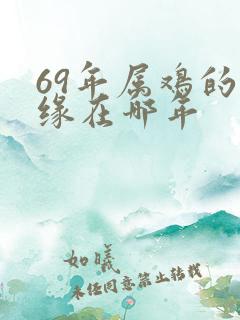 69年属鸡的
缘在哪年
如曦
未经同意禁止转载